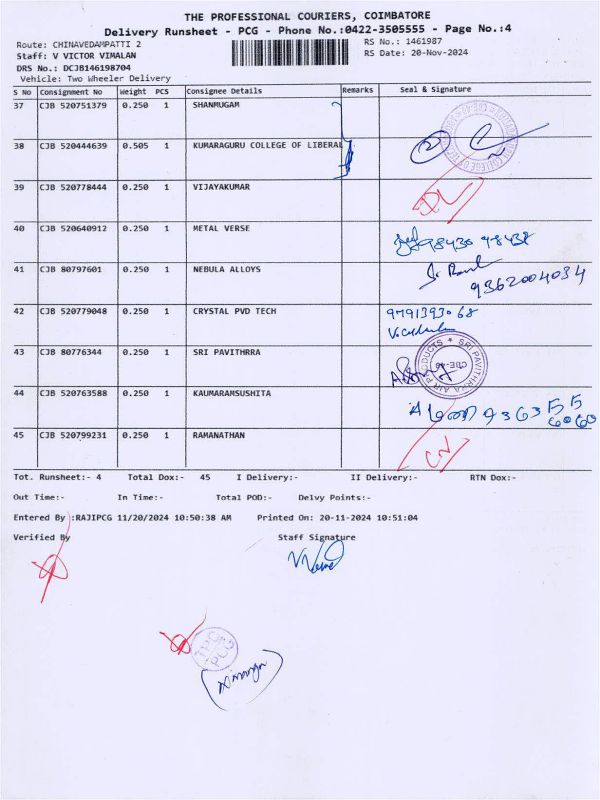 THE PROFESSIONAL COURIERS, COIMBATORE
Delivery Runsheet - PCG - Phone No.:0422-3505555 - Page No.:4
Route: CHINAVEDAMPATTI 2 RS No.: 1461987
Staff: V VICTOR VIMALAN RS Date: 20-Nov-2024
DRS No.: DCJB146198704
Vehicle: Two Wheeler Delivery
S No Consignment No Weight PCS Consignee Details Remarks Seal & Signature
37 CJB 520751379 0.250 1 SHANMUGAM
38 CJB 520444639 0.505 1 KUMARAGURU COLLEGE OF LIBERAL
2
39 CJB 520778444 0.250 1 VIJAYAKUMAR
DL
40 CJB 520640912 0.250 1 METAL VERSE
98430 98438
41 CJB 80797601 1 0.250 NEBULA ALLOYS
9362004034
42 CJB 520779048 0.250 1 CRYSTAL PVD TECH
9791393068
43 CJB 80776344 0.250 1 SRI PAVITHRRA
SRI PAVITHRRA AIR PRODUCTS
CBE-49
44 CJB 520763588 0.250 1 KAUMARAMSUSHITA
93635 5
6060
45 CJB 520799231 0.250 1 RAMANATHAN
CN
Tot. Runsheet:- 4 Total Dox:- 45 I Delivery:- II Delivery:- RTN Dox:-
Out Time:- In Time:- Total POD:- Delvy Points:-
Entered By :RAJIPCG 11/20/2024 10:50:38 AM Printed On: 20-11-2024 10:51:04
Verified By Staff Signature